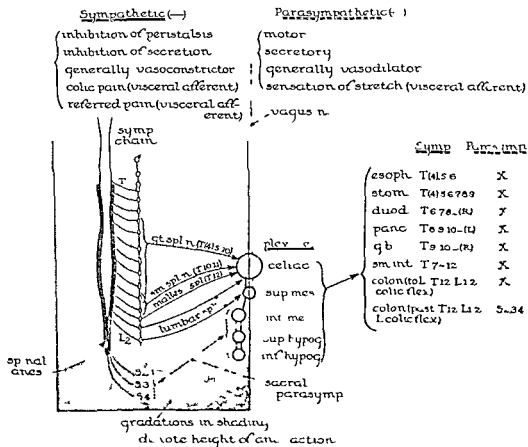 Sympathetic (—)
inhibition of peristalsis
inhibition of secretion
generally vasoconstrictor
colic pain (visceral afferent)
referred pain (visceral aff-
erent)
Parasympathetic (-)
motor
secretory
generally vasodilator
sensation of stretch (visceral afferent)
vagus n
symp
chain
T
L2
S2
S3
S4
gt spl n (T(4)5 10)
sm spl n (T10 11)
lumbar
celiac
sup mes
sup hypog
inf hypog
sacral
parasymp
gradations in shading
height of action
Symp
esoph T(4) 5 6 X
stom T(4) 5 6 7 8 9 X
duod T 6 7 8 -(R) X
panc T 8 9 10 -(R) X
g b T 9 10 -(R) X
sm int T 7-12 X
colon (to L T12 L1 2 X
colic flex)
colon (past T12 L1 2 S 2 34
L colic flex)